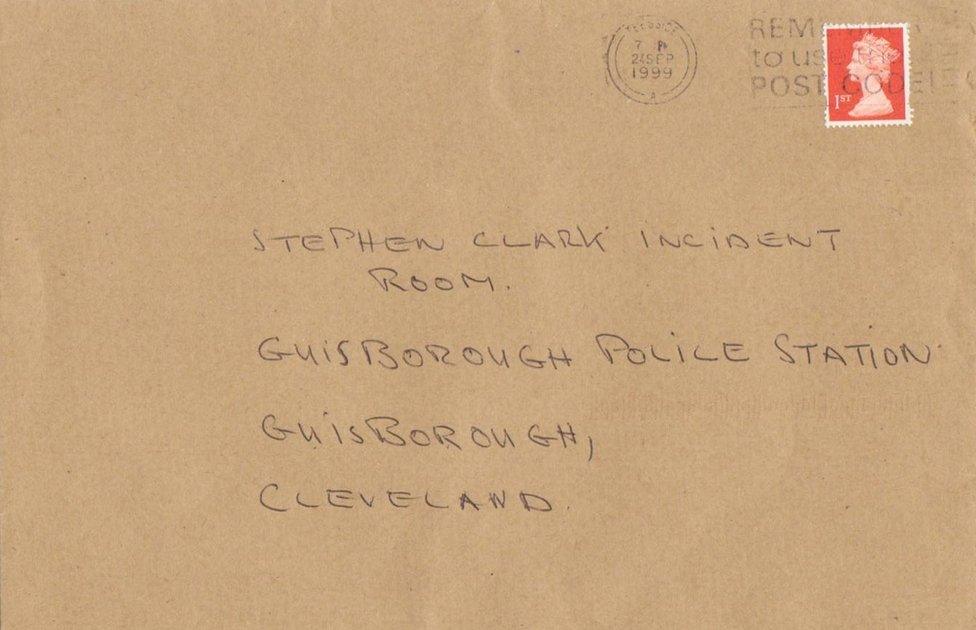 TEESSIDE
7 PM
24 SEP
1999
A
REMEMBER
to use the
POST CODE!
1ST
STEPHEN CLARK INCIDENT
ROOM.
GUISBOROUGH POLICE STATION
GUISBOROUGH,
CLEVELAND.